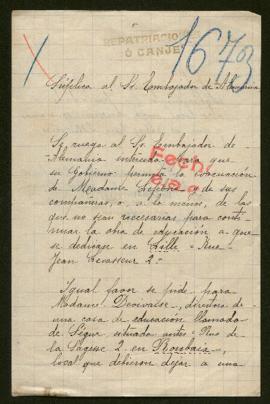 REPATRIACIO
Ó CANJE
1673
Súplica al Sr. Embajador de Alemania
Se ruega al Sr. Embajador de
Alemania interceda para que
su Gobierno permita la evacuación
de Madame Lefebvre y de sus
compañeras, o, a lo menos, de las
que no sean necesarias para conti
nuar la obra de educación a que
se dedican en Lille - Rue
Jean Levasseur 2 -
Fecha
Igual favor se pide para
Madame directora de
una casa de educación llamada
de Segur, situada antes Rue de
la Sagesse 2 en Roubaix,
local que debieron dejar a una